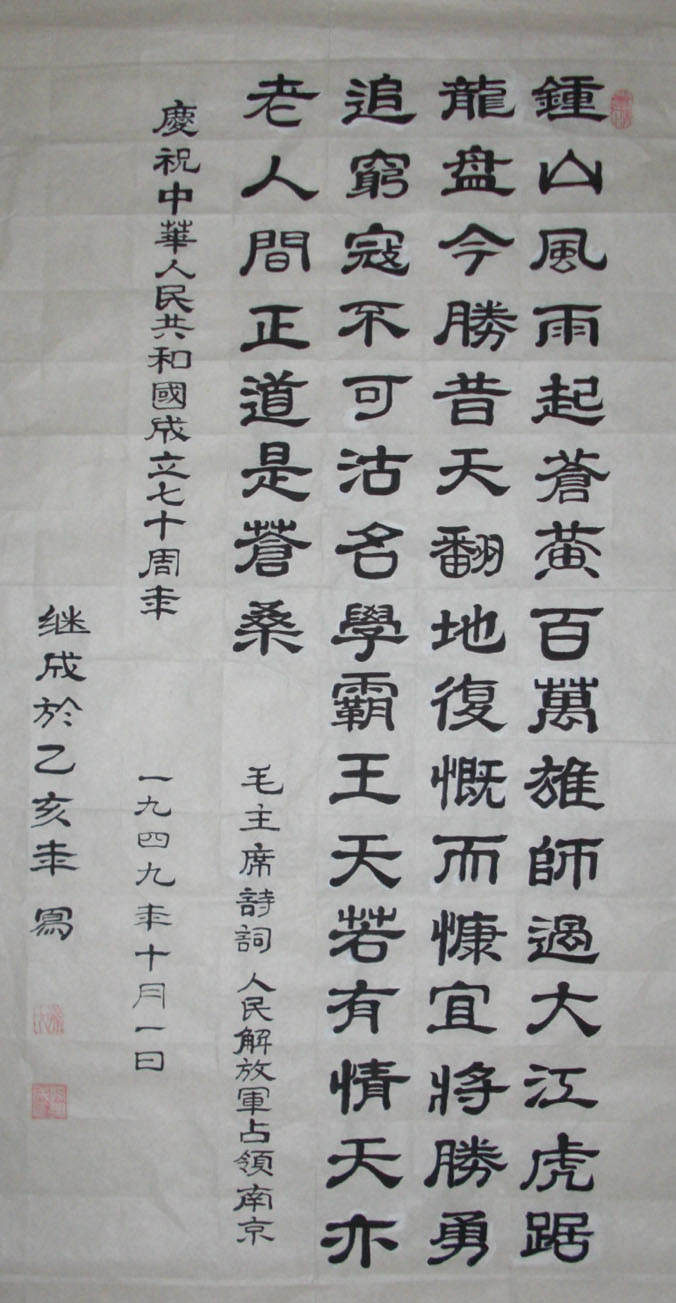 鍾山風雨起蒼黄百萬雄師過大江虎踞
龍盘今勝昔天翻地復慨而慷宜將勝勇
追窮寇不可沽名學霸王天若有情天亦
老人間正道是蒼桑
毛主席詩詞 人民解放軍占領南京
慶祝中華人民共和國成立七十周年
一九四九年十月一日
继成於乙亥年寫